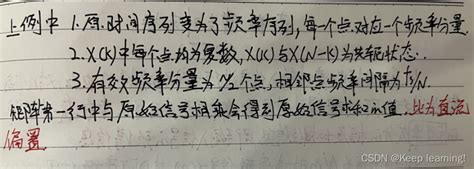 上例中 1.原时间序列变为了频率序列,每个点对应一个频率分量.
2.X(K)中每个点均为复数,X(K)与X(N-K)为共轭状态.
3.有效频率分量为N/2个点,相邻点频率间隔为fs/N.
矩阵第一行中与原始信号相乘会得到原始信号求和的值.此为直流
偏置.
CSDN @Keep learning!